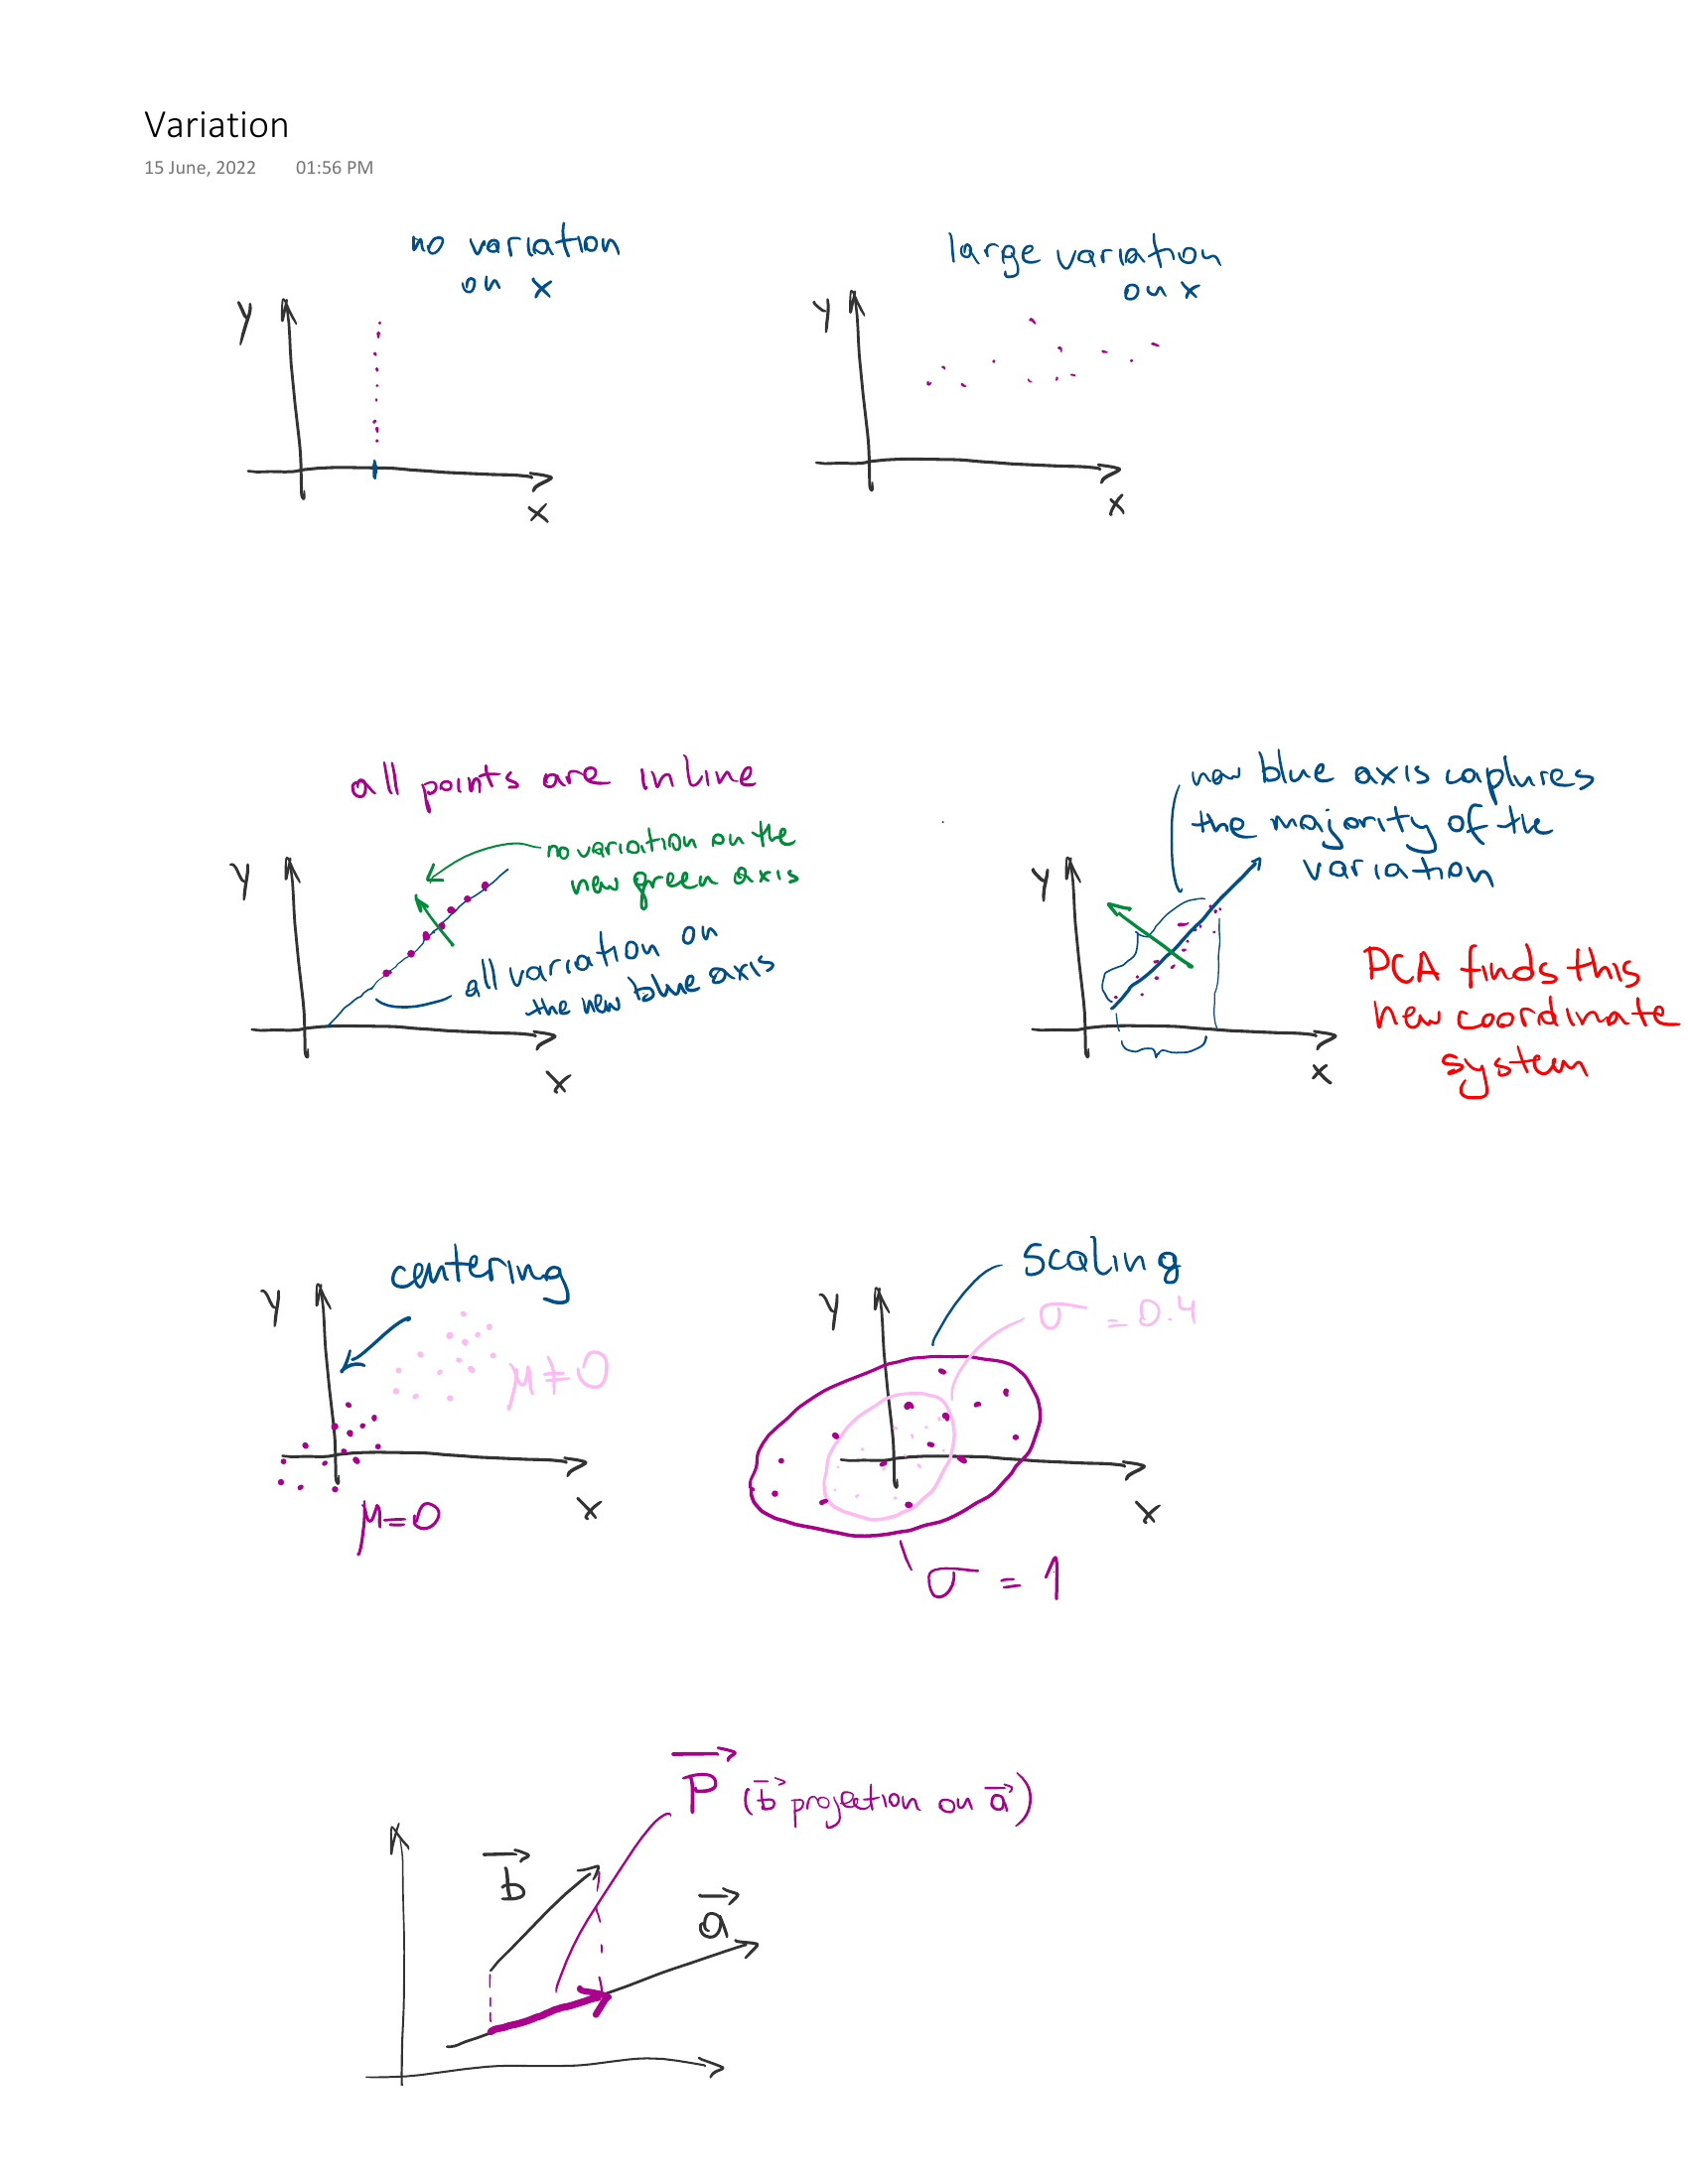 Variation
15 June, 2022 01:56 PM
no variation
on x
y
x
large variation
on x
y
x
all points are in line
no variation on the
new green axis
y
all variation on
the new blue axis
x
new blue axis captures
the majority of the
variation
y
x
PCA finds this
new coordinate
system
centering
y
μ≠0
x
μ=0
scaling
y
σ = 0.4
x
σ = 1
P (b projection on a)
b
a